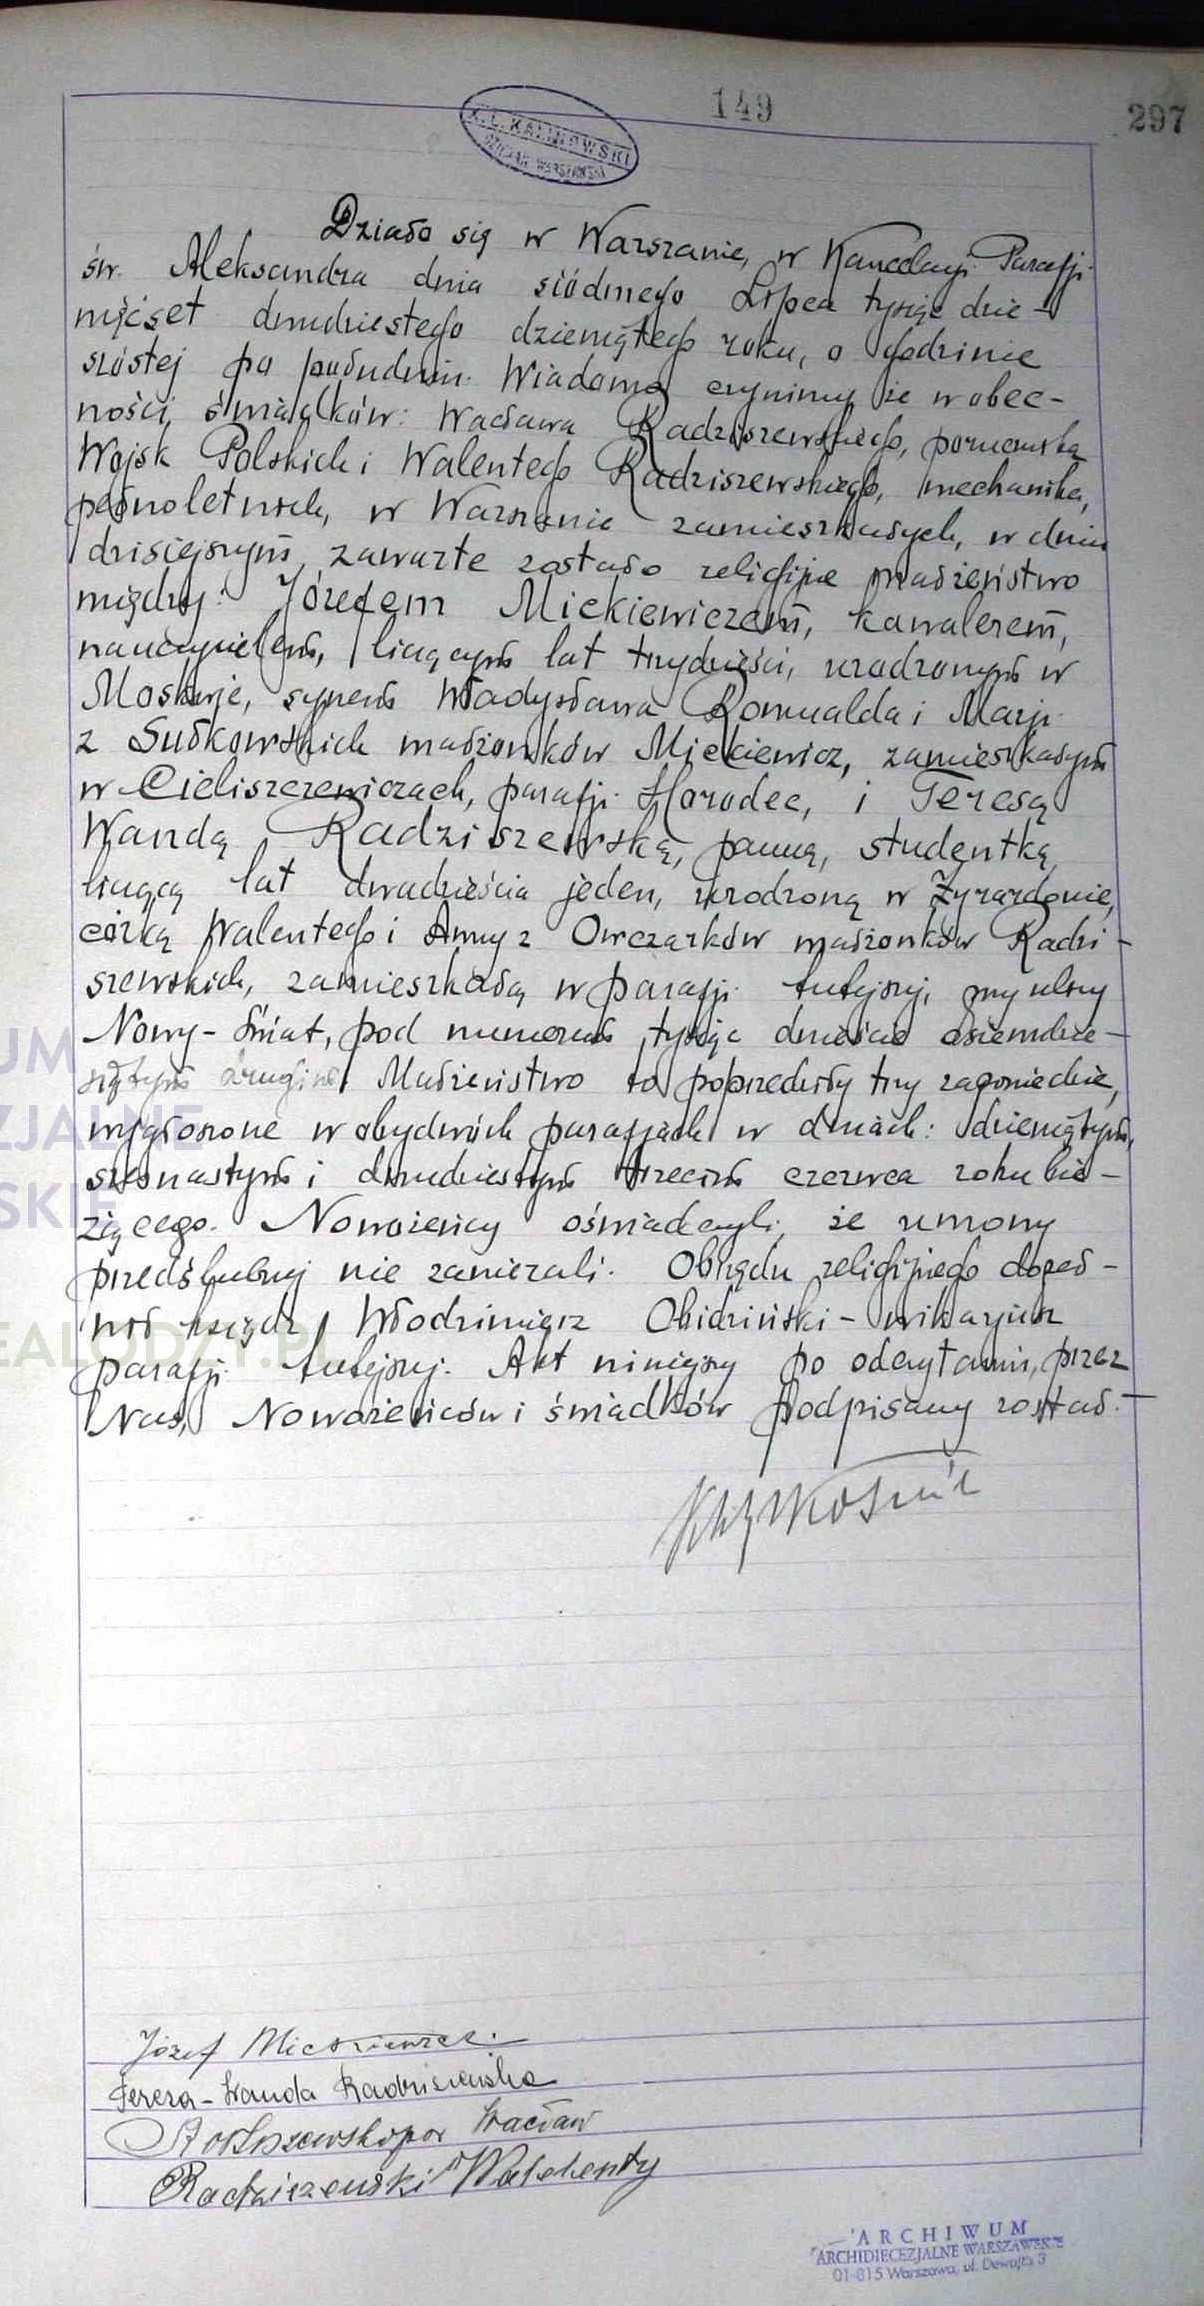 149
297
X. L. KALINOWSKI
DZIEKAN WARSZAWSKI
Działo się w Warszawie, w Kancelaryi Parafji
św. Aleksandra dnia siódmego Lipca tysiąc dzie-
więćset dwudziestego dziewiątego roku, o godzinie
szóstej po południu. Wiadomo czynimy że w obec-
ności świadków: Wacława Radziszewskiego, porucznika
Wojsk Polskich i Walentego Radziszewskiego, mechanika,
pełnoletnich, w Warszawie zamieszkałych, w dniu
dzisiejszym zawarte zostało religijne małżeństwo
między: Józefem Mickiewiczem, kawalerem,
nauczycielem, liczącym lat trzydzieści, urodzonym w
Moskwie, synem Władysława Romualda i Marji
z Sułkowskich małżonków Mickiewicz, zamieszkałym
w Cieliszczewiczach, parafji Horodec, i Teresą
Wandą Radziszewską, panną, studentką,
liczącą lat dwadzieścia jeden, urodzoną w Żyrardowie,
córką Walentego i Anny z Owczarków małżonków Radzi-
szewskich, zamieszkałą w parafji tutejszej, przy ulicy
Nowy-Świat, pod numerem tysiąc dwieście osiemdzie-
siątym drugim. Małżeństwo to poprzedziły trzy zapowiedzie,
wygłoszone w obydwóch parafjach w dniach: dziewiątym,
szesnastym i dwudziestym trzecim czerwca roku bie-
żącego. Nowożeńcy oświadczyli, że umowy
przedślubnej nie zawierali. Obrzędu religijnego dopeł-
nił ksiądz Włodzimierz Obidziński - wikaryusz
parafji tutejszej. Akt niniejszy po odczytaniu, przez
Nas, Nowożeńców i świadków podpisany został.-
Józef Mickiewicz.
Teresa-Wanda Radziszewska
Radziszewski por Wacław
Radziszewski Walenty
ARCHIWUM
ARCHIDIECEZJALNE WARSZAWSKIE
01-815 Warszawa, ul. Dewajtis 3
UM
ZJALNE
SKIE
EALODZY.PL